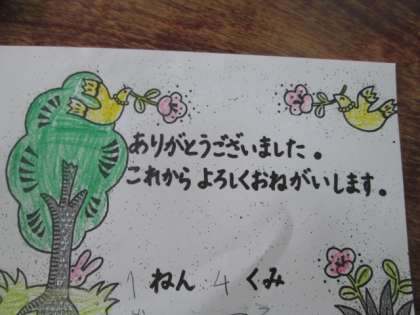 ありがとうございました。
これからよろしくおねがいします。
1 ねん 4 くみ